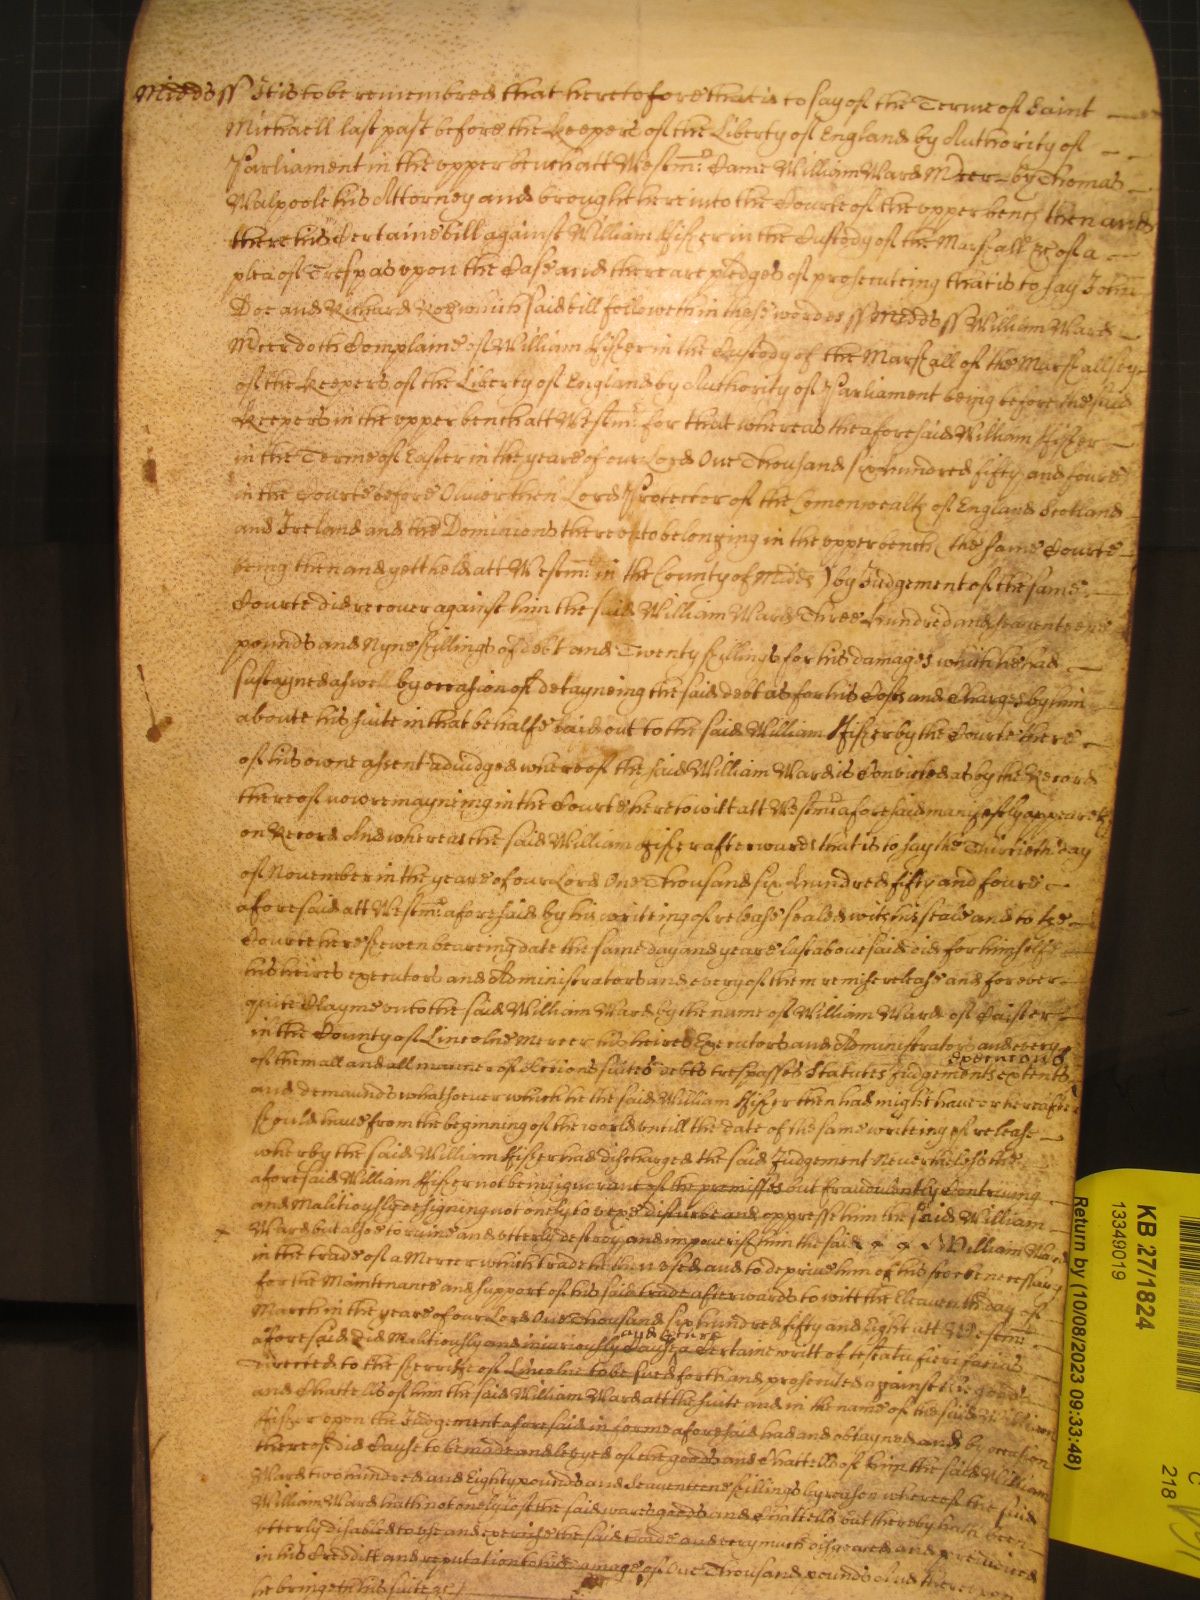 Midds ss It is to be remembred that heretofore that is to say of the Terme of Saint
Michaell last past before the Keepers of the Liberty of England by Authority of
Parliament in the upper bench att Westmr: Came William Ward Mercer by Thomas
Walpoole his Attorney and brought here into the Courte of the upper bench then and
there his Certaine bill against William Fisher in the Custody of the Marshall &c of a
plea of Trespas upon the Case and there are pledges of prosecuteing that is to say John
Doe and Richard Roe which said bill followeth in these wordes ss Midds ss William Ward
Mercer doth Complaine of William Fisher in the Custody of the Marshall of the Marshallsey
of the Keepers of the Liberty of England by Authority of Parliament being before the said
Keepers in the upper bench att Westmr: for that whereas the aforesaid William Fisher
in the Terme of Easter in the yeare of our Lord One Thousand six hundred fifty and foure
in the Courte before Oliver then Lord Protector of the Comonwealth of England Scotland
and Ireland and the Dominions thereunto belonging in the upper bench (the same Courte
being then and yett held att Westmr: in the County of Midds) by Judgement of the same
Courte did recover against him the said William Ward Three hundred and seaventeene
pounds and Nyne shillings of debt and Twenty shillings for his damages which he had
sustayned aswell by occasion of detayneing the said debt as for his Costs and Charges by him
about his suite in that behalfe laid out to the said William Fisher by the Courte there
of his owne assent adiudged whereof the said William Ward is Convicted as by the Record
thereof now remayneing in the Courte here to witt att Westmr: aforesaid manifestly appeareth
on Record And whereas the said William Fisher afterwards that is to say the Thirtieth day
of November in the yeare of our Lord One Thousand six hundred fifty and foure
aforesaid att Westmr: aforesaid by his writeing of release sealed with his seale and to the
Courte here shewen beareing date the same day and yeare last abovesaid did for himselfe
his heires executors and Administrators and every of them remise release and for ever
quite Clayme unto the said William Ward by the name of William Ward of Caister
in the County of Lincolne Mercer his heires Executors and Administrators and every
executions
of them all and all manner of Actions suites debts trespasses Statutes Judgements extents
and demaunds whatsoever which he the said William Fisher then had might have or hereafter
should have from the beginning of the world untill the date of the same writeing of release
wherby the said William Fisher had discharged the said Judgement Neverthelesse the
aforesaid William Fisher not being ignorant of the premisses but fraudulently Contriving
and Malitiously designing not onely to vexe disturbe and oppresse him the said William
Ward but alsoe to ruine and utterly destroy and impoverish him the said William Ward
in the trade of a Mercer which trade he then used and to deprive him of his stocke necessary
for the Maintenance and support of his said trade afterwards to witt the Eleaventh day of
March in the yeare of our Lord One Thousand six hundred fifty and Eight att Westmr:
and procure
aforesaid did Malitiously and iniuriously Cause a Certaine writt of testatu fieri facias
directed to the sherriffe of Lincolne to be sued forth and prosecuted against the goods
and Chattells of him the said William Ward att the suite and in the name of the said William
Fisher upon the Judgement aforesaid in forme aforesaid had and obtayned and by occasion
thereof did Cause to be made and levyed of the goods and Chattells of him the said William
Ward two hundred and Eighty pounds and Seaventeene shillings by reason whereof the said
William Ward hath not onely lost the said wares goods and Chattells but thereby hath been
utterly disabled to use and exercise the said trade and very much disgraced and preiudiced
in his Creditt and reputation to his damage of One Thousand pounds And thereupon
he bringeth his suite &c
KB 27/1824
13349019
Return by (10/08/2023 09:33:48)
C
218